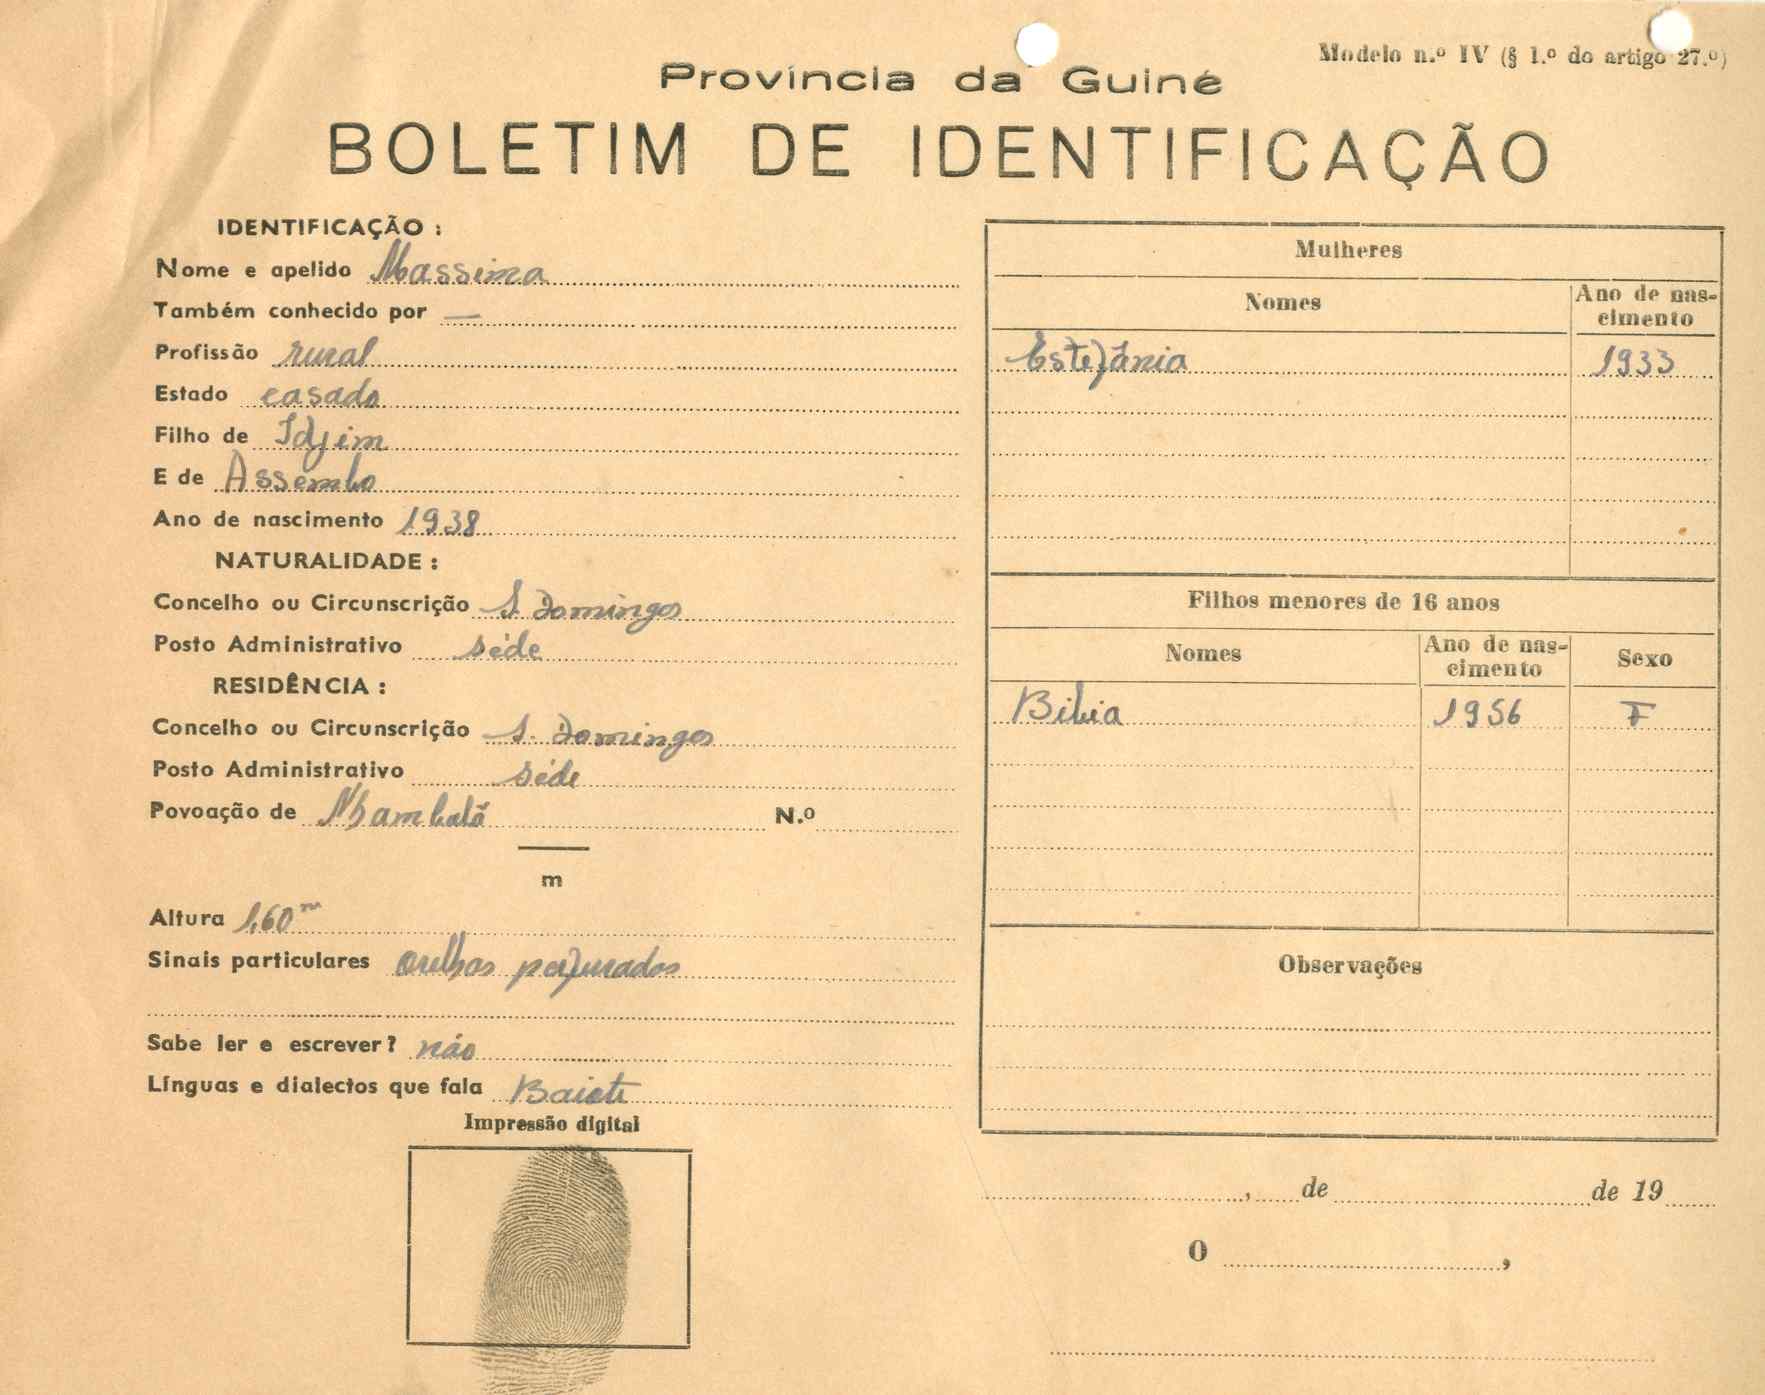 Modelo n.º IV (§ 1.º do artigo 27.º)
Província da Guiné
BOLETIM DE IDENTIFICAÇÃO
IDENTIFICAÇÃO :
Nome e apelido Massima
Também conhecido por —
Profissão rural
Estado casado
Filho de Idjim
E de Assembo
Ano de nascimento 1938
NATURALIDADE :
Concelho ou Circunscrição S. Domingos
Posto Administrativo séde
RESIDÊNCIA :
Concelho ou Circunscrição S. Domingos
Posto Administrativo séde
Povoação de Nhambalã N.º
m
Altura 1,60 m
Sinais particulares orelhas perfuradas
Sabe ler e escrever? não
Línguas e dialectos que fala Baiote
Impressão digital
Mulheres
Nomes Ano de nas-
cimento
Estefânia 1933
Filhos menores de 16 anos
Nomes Ano de nas-
cimento Sexo
Bibia 1956 F
Observações
, de de 19
O ,